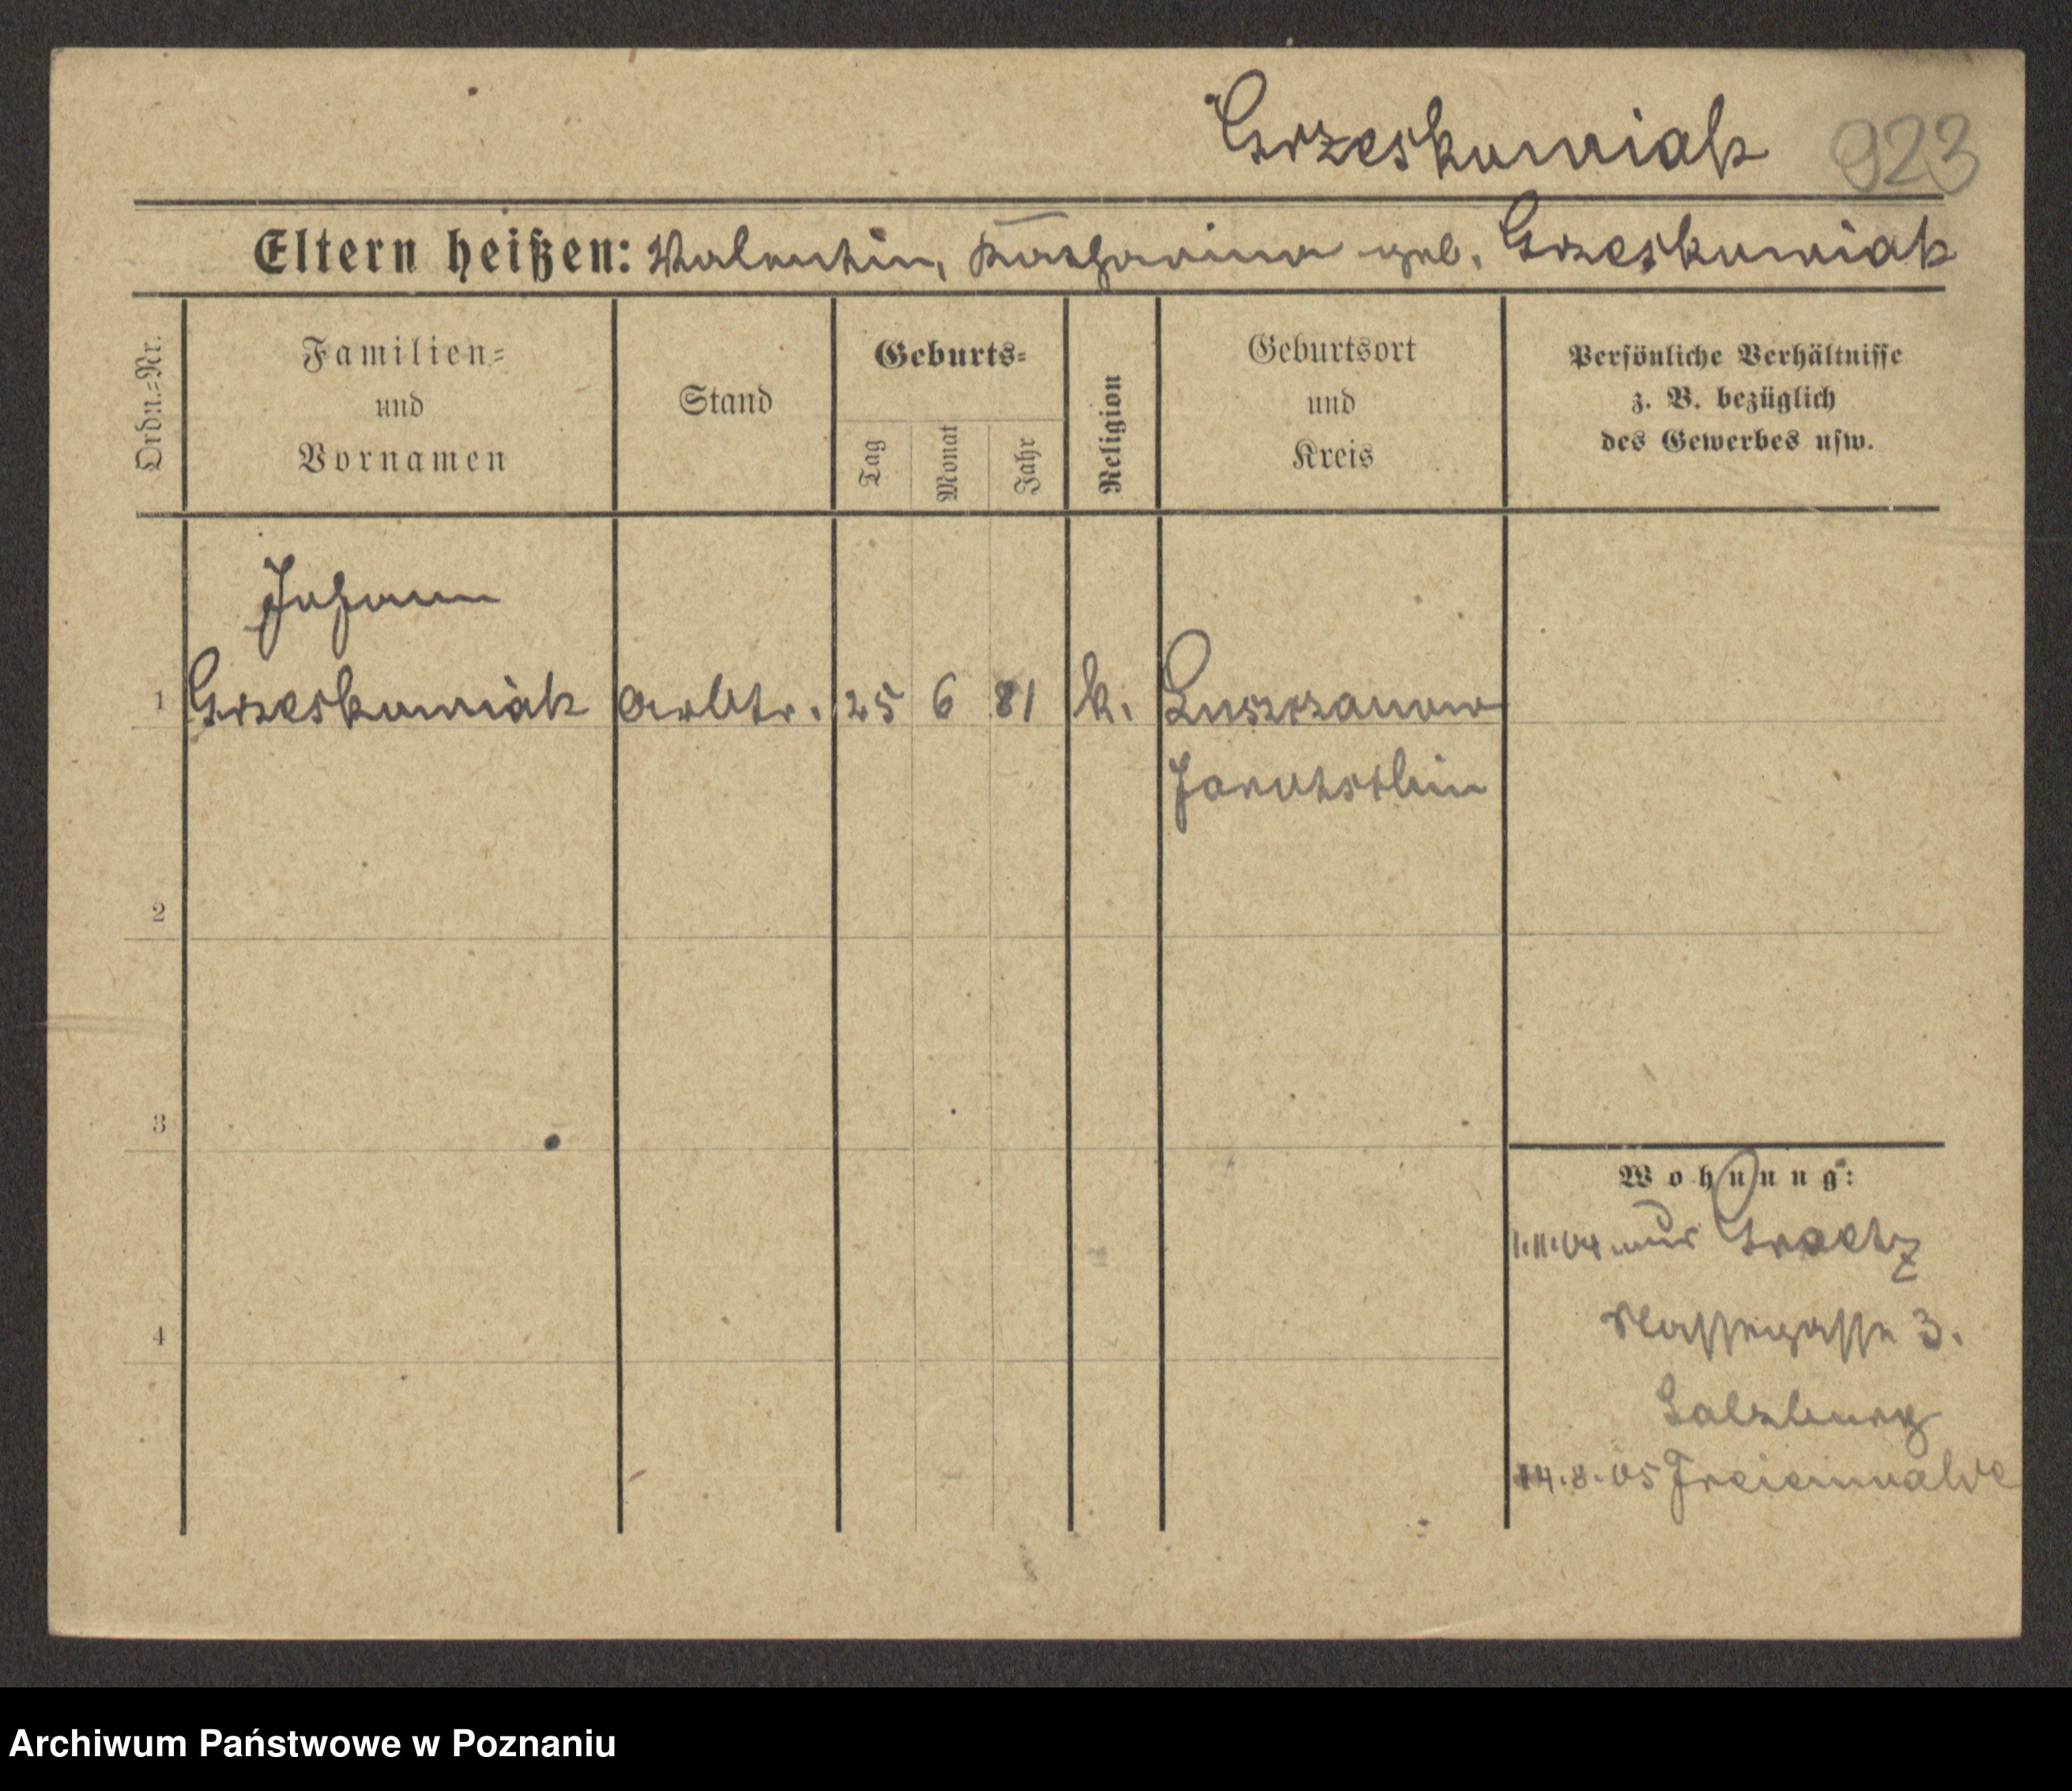 Grzeskowiak 923
Eltern heißen: Valentin, Katharina geb. Grzeskowiak
Ordn.=Nr.
Familien=
und
Vornamen
Stand
Geburts=
Tag
Monat
Jahr
Religion
Geburtsort
und
Kreis
Persönliche Verhältnisse
z. B. bezüglich
des Gewerbes usw.
Johann
1 Grzeskowiak Arbtr. 25 6 81 k. Luszczanow
Jarotschin
2
3
4
Wohnung:
1.11.04 aus Graetz
3.
Salzburg
14.8.05 Freienwalde
Archiwum Państwowe w Poznaniu